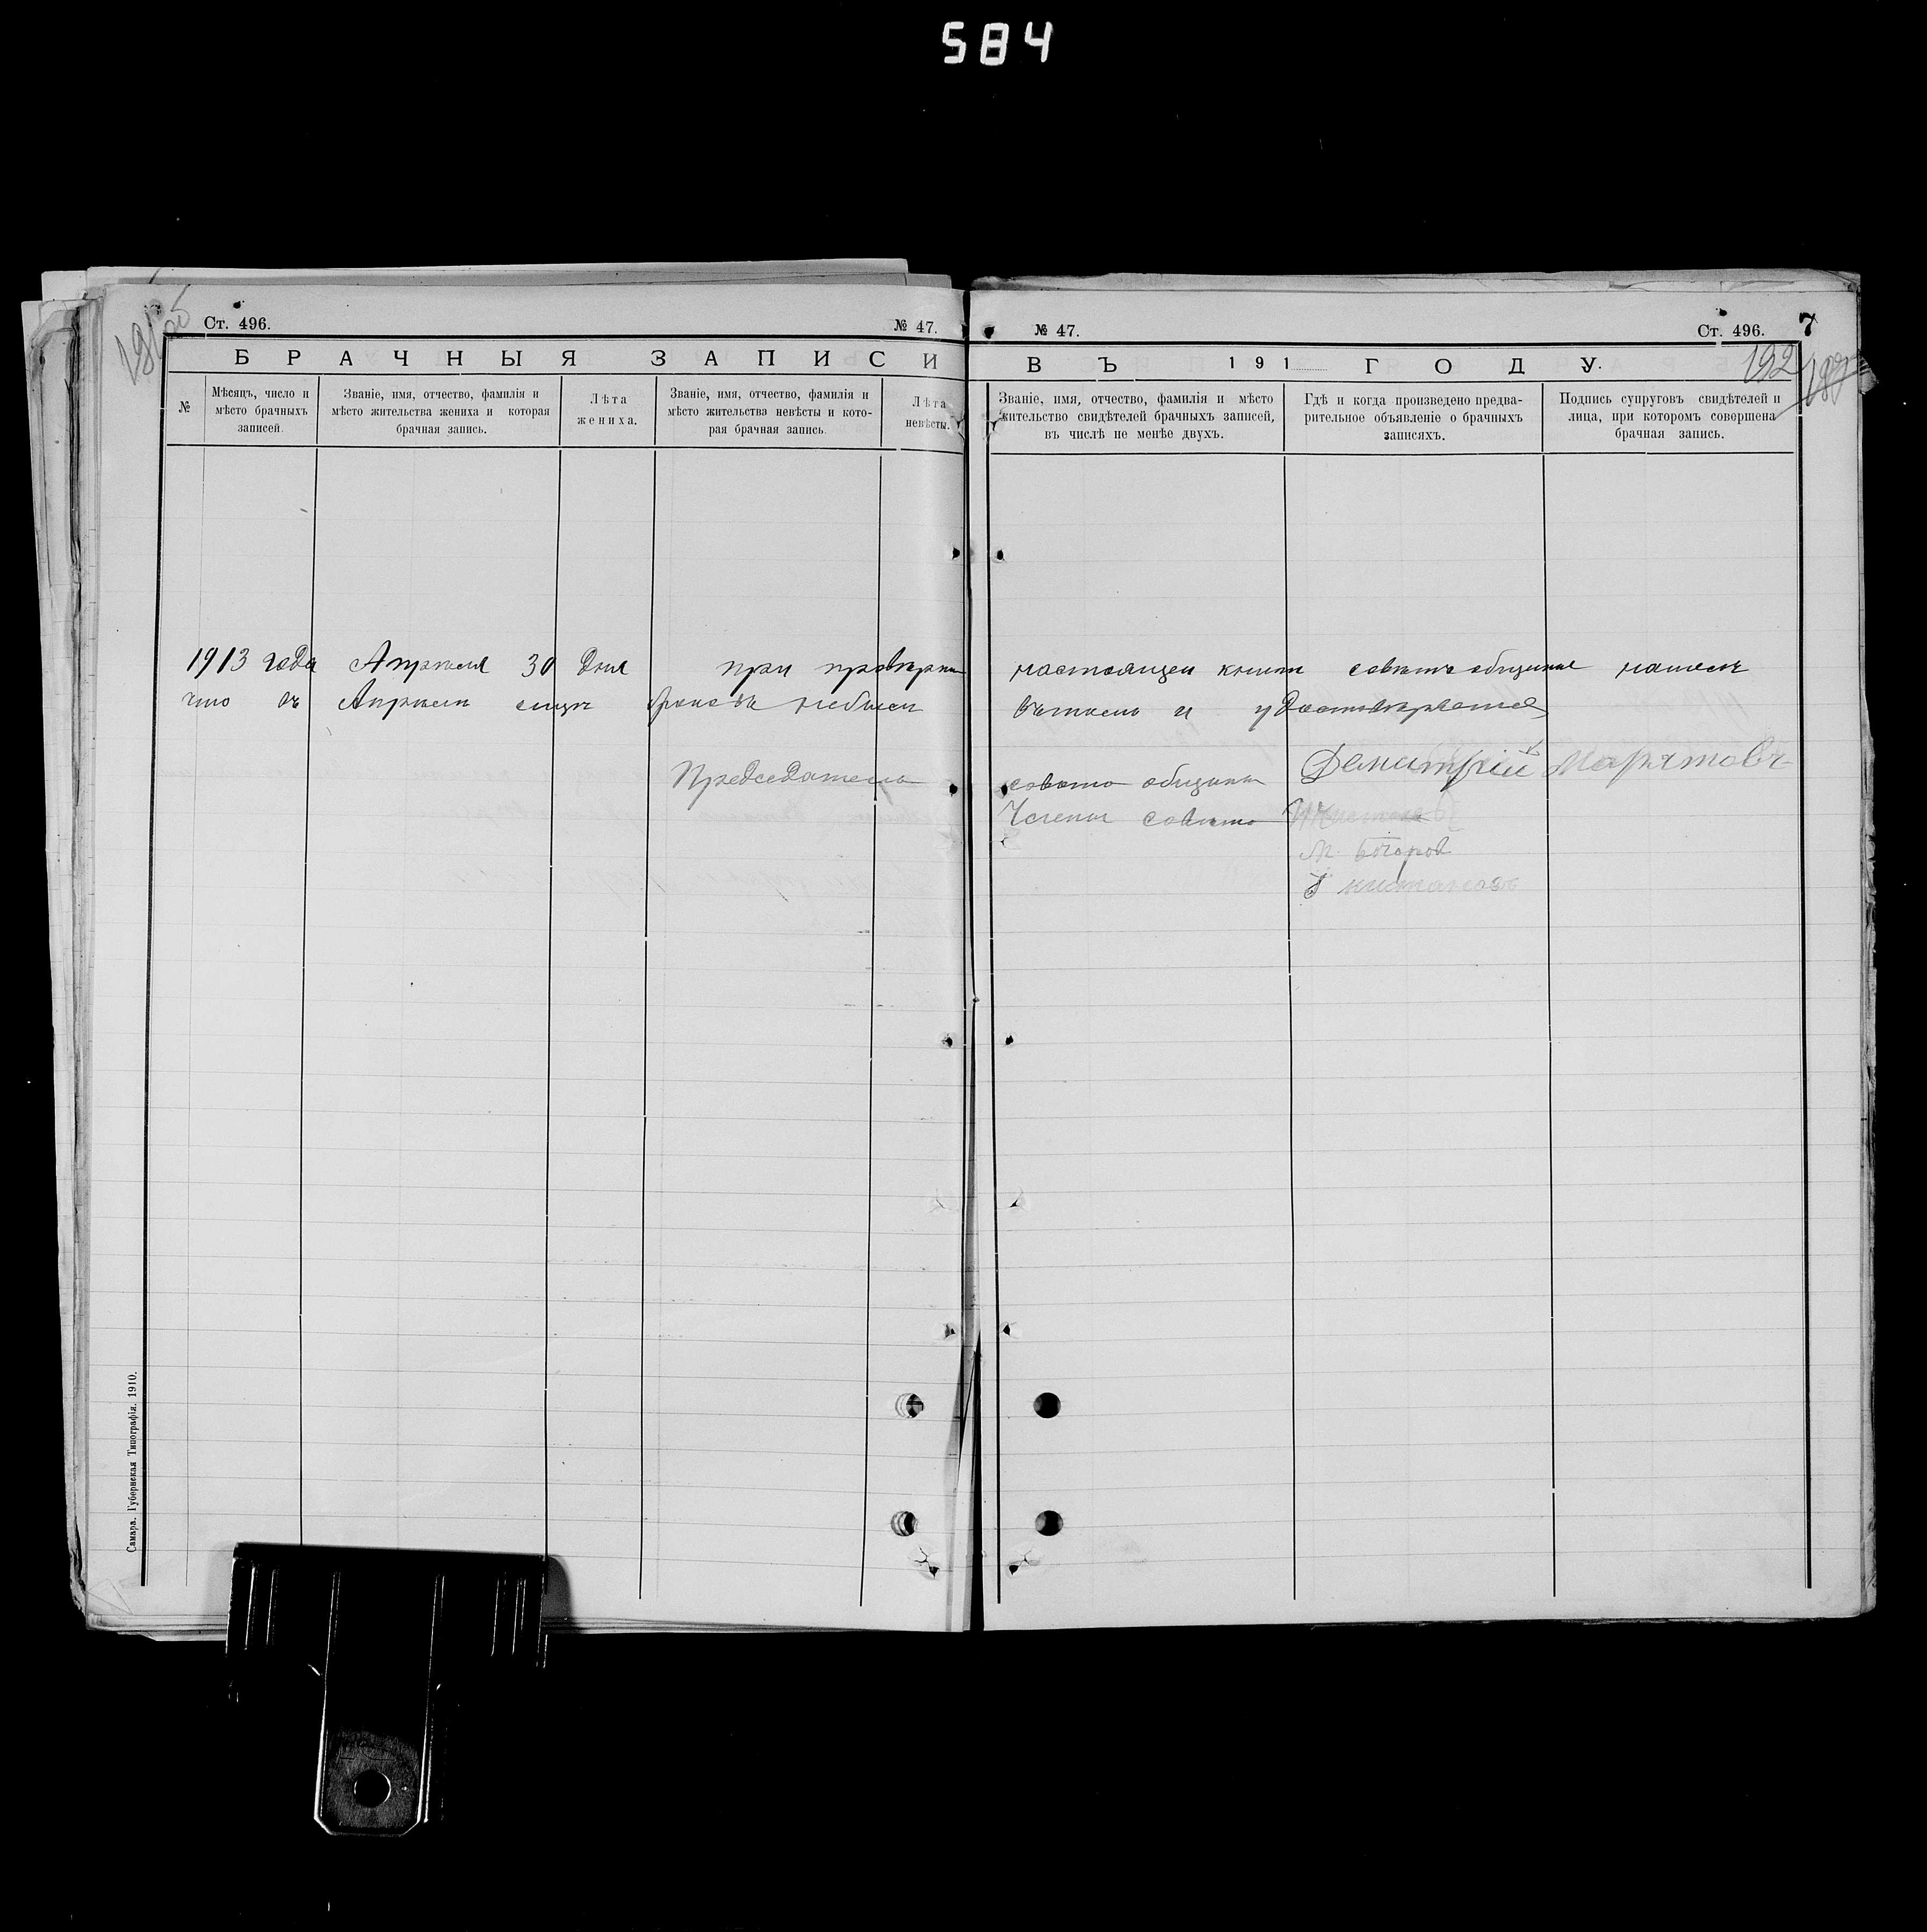 584
Ст. 496.
№ 47.
№ 47.
Ст. 496.
7
БРАЧНЫЯ ЗАПИСИ
ВЪ 191 ГОДУ.
192
№
Мѣсяцъ, число и
мѣсто брачныхъ
записей.
Званіе, имя, отчество, фамилія и
мѣсто жительства жениха и которая
брачная запись.
Лѣта
жениха.
Званіе, имя, отчество, фамилія и
мѣсто жительства невѣсты и кото-
рая брачная запись.
Лѣта
невѣсты.
Званіе, имя, отчество, фамилія и мѣсто
жительство свидѣтелей брачныхъ записей,
въ числѣ не менѣе двухъ.
Гдѣ и когда произведено предва-
рительное объявленіе о брачныхъ
записяхъ.
Подпись супруговъ свидѣтелей и
лица, при которомъ совершена
брачная запись.
1913 года Апрѣля 30 дня при провѣрки настоящей книги совѣтъ общины нашелъ
что въ Апрѣли браковъ небыли въ томъ и удостовѣряетъ
Председатель совѣта общины Демитрій
Члены совѣта
Самара. Губернская Типографія. 1910.